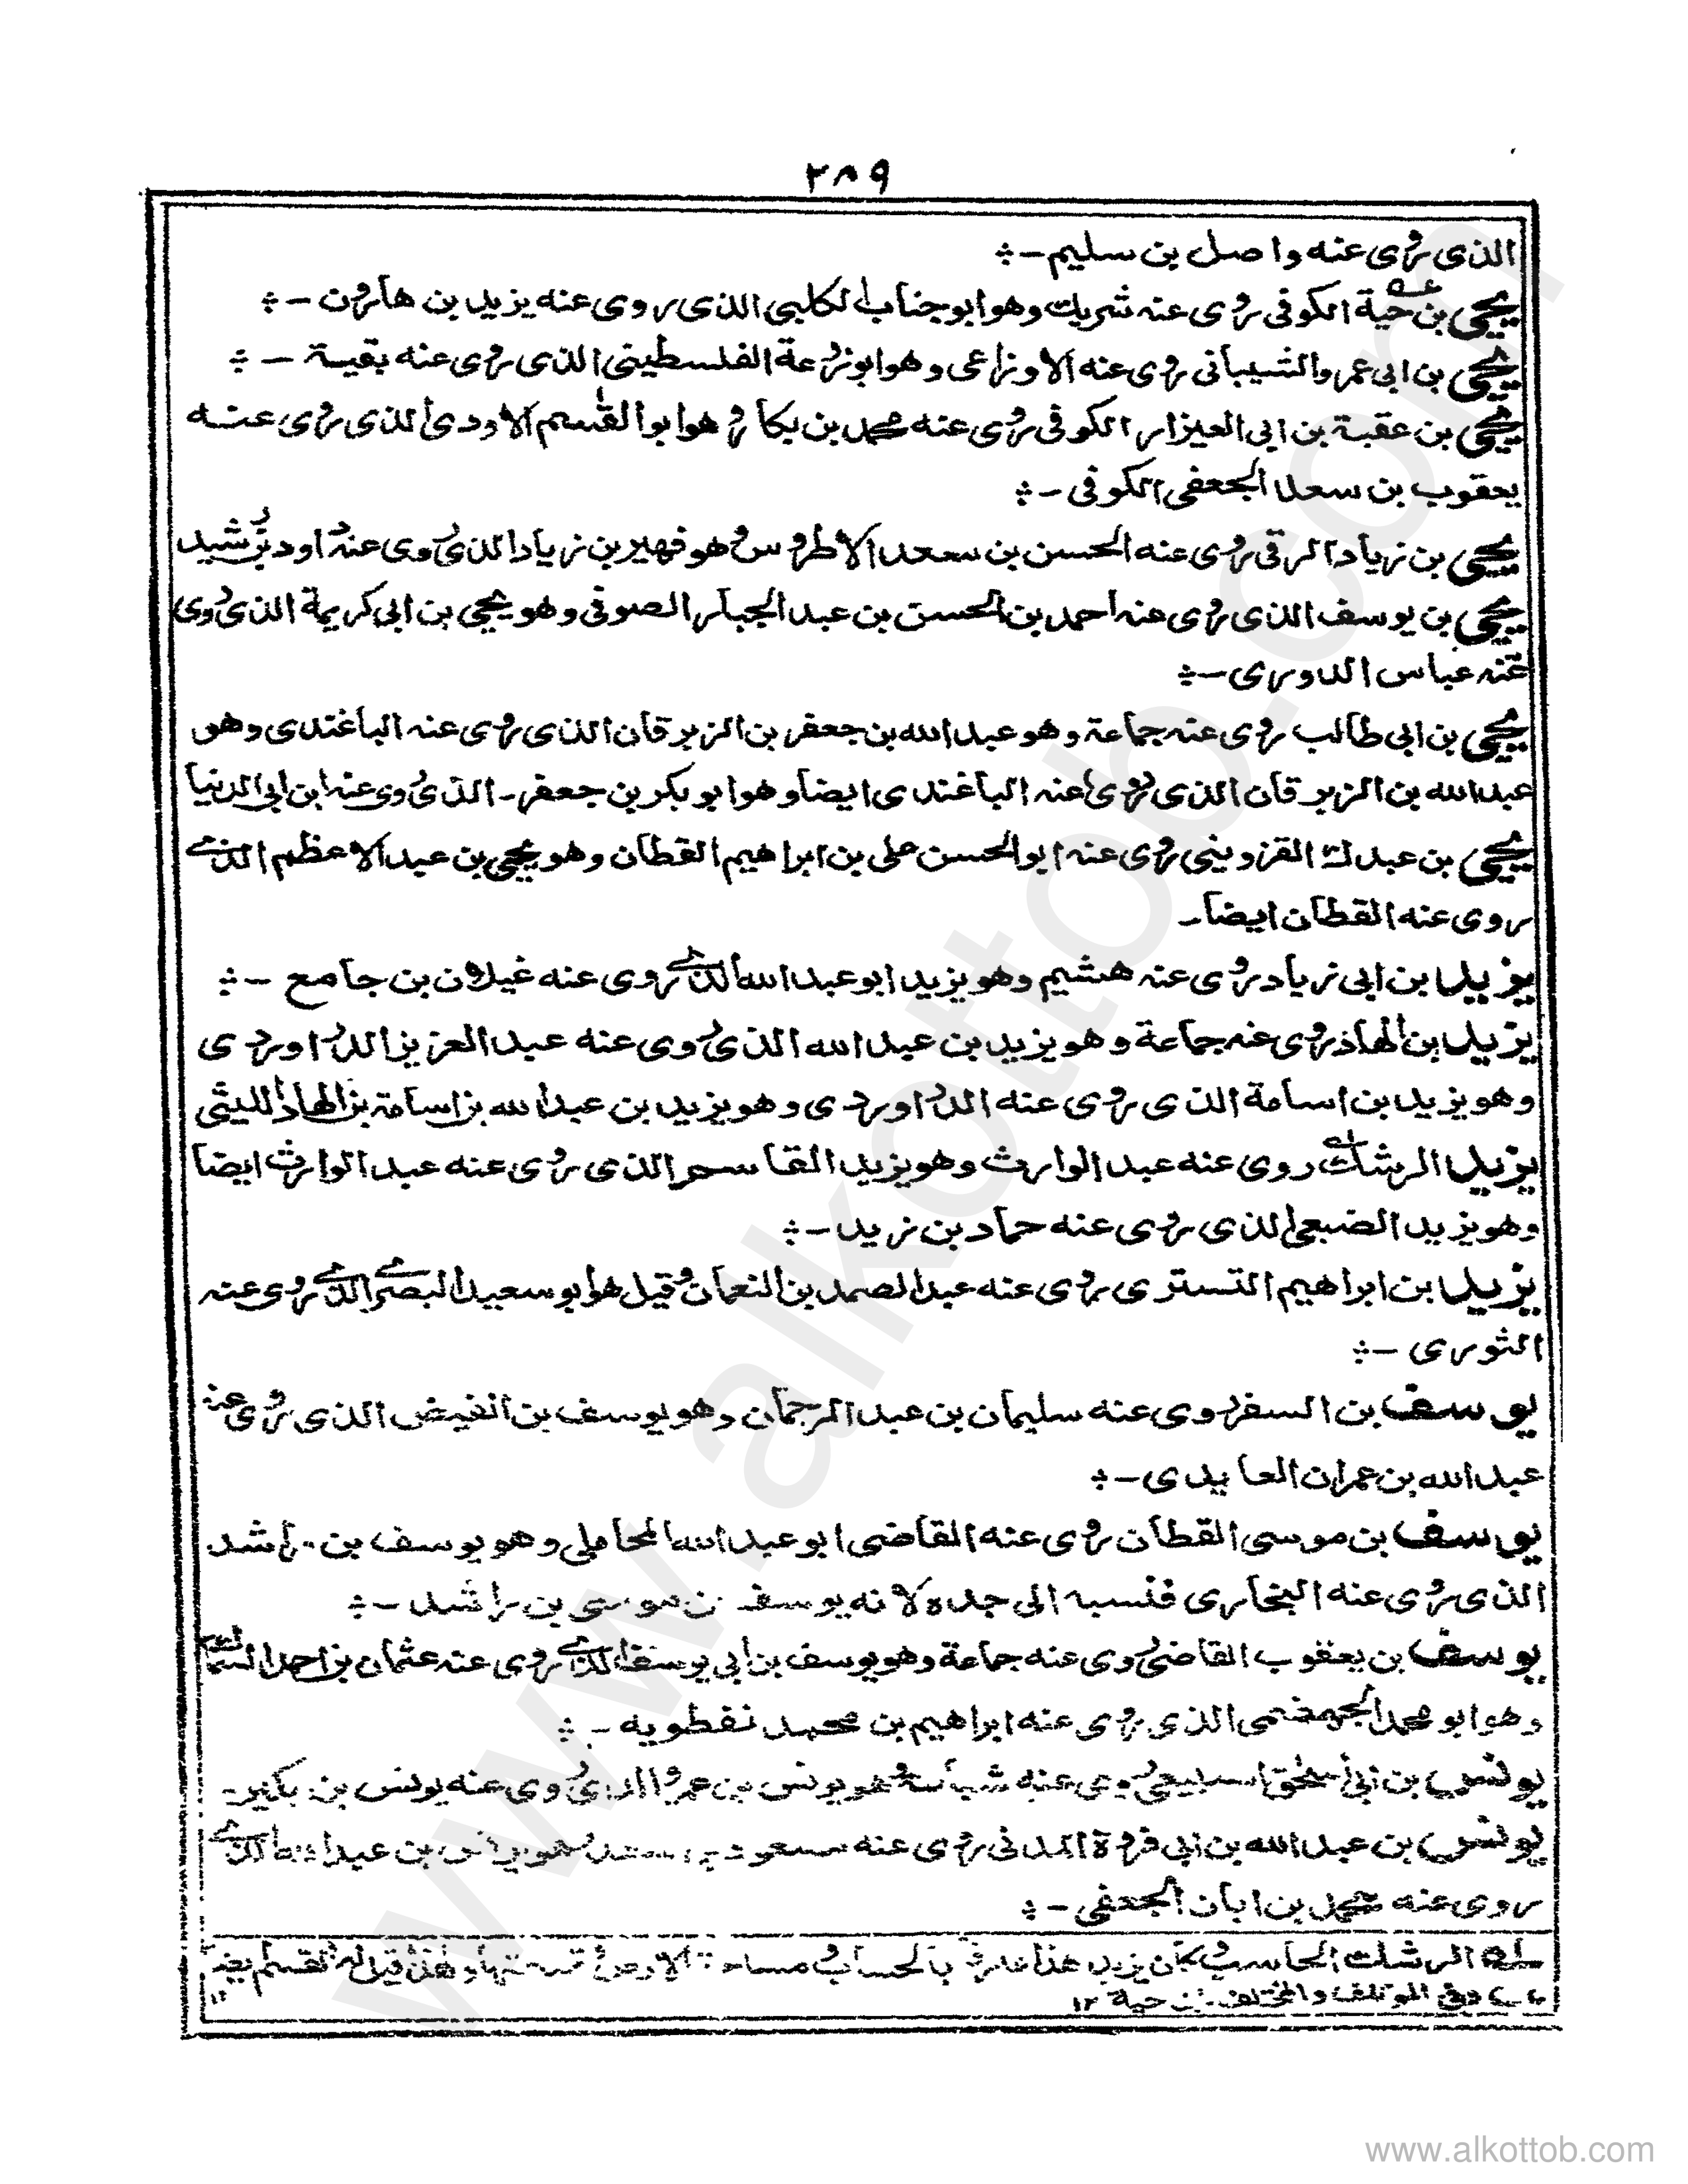 ٢٨٩
الذى روى عنه واصل بن سليم -
يحيى بن حية الكوفى روى عنه شريك وهو ابو جناب الكلبى الذى روى عنه يزيد بن هارون -
يحيى بن ابى عمرو الشيبانى روى عنه الاوزاعى وهو ابو زرعة الفلسطينى الذى روى عنه بقية -
يحيى بن عقبة بن ابى العيزار الكوفى روى عنه محمد بن بكار وهو ابو القسم الاودى الذى روى عنه
يعقوب بن سعد الجعفى الكوفى -
يحيى بن زياد الرقى روى عنه الحسن بن سعد الاطروس وهو فهير بن زياد الذى روى عنه داود بن رشيد
يحيى بن يوسف الذى روى عنه احمد بن الحسن بن عبد الجبار الصوفى وهو يحيى بن ابى كريمة الذى روى
عنه عباس الدورى -
يحيى بن ابى طالب روى عنه جماعة وهو عبد الله بن جعفر بن الزبرقان الذى روى عنه الباغندى وهو
عبد الله بن الزبرقان الذى روى عنه الباغندى ايضا وهو ابو بكر بن جعفر - الذى روى عنه ابن ابى الدنيا
يحيى بن عبدك القزوينى روى عنه ابو الحسن على بن ابراهيم القطان وهو يحيى بن عبد الاعظم الذى
روى عنه القطان ايضا -
يزيد بن ابى زياد روى عنه هشيم وهو يزيد ابو عبد الله الذى روى عنه غيلان بن جامع -
يزيد بن الهاذ روى عنه جماعة وهو يزيد بن عبد الله الذى روى عنه عبد العزيز الدراوردى
وهو يزيد بن اسامة الذى روى عنه الدراوردى وهو يزيد بن عبد الله بن اسامة بن الهاذ الليثى
يزيد الرشك روى عنه عبد الوارث وهو يزيد القاسم الذى روى عنه عبد الوارث ايضا
وهو يزيد الضبعى الذى روى عنه حماد بن زيد -
يزيد بن ابراهيم التسترى روى عنه عبد الصمد بن النعمان وقيل هو ابو سعيد البصرى الذى روى عنه
الثورى -
يوسف بن السفر روى عنه سليمان بن عبد الرحمان وهو يوسف بن الفيض الذى روى عنه
عبد الله بن عمران العابدى -
يوسف بن موسى القطان روى عنه القاضى ابو عبد الله المحاملى وهو يوسف بن راشد
الذى روى عنه البخارى فنسبه الى جده لانه يوسف بن موسى بن راشد -
يوسف بن يعقوب القاضى روى عنه جماعة وهو يوسف بن ابى يوسف الذى روى عنه عثمان بن احمد
وهو ابو محمد الجهضمى الذى روى عنه ابراهيم بن محمد نفطويه -
يونس بن ابى اسحق السبيعى روى عنه شبابة وهو يونس بن عمرو الذى روى عنه يونس بن بكير -
يونس بن عبد الله بن ابى فروة المدنى روى عنه مسعود بن سعد وهو يونس بن عبد الله الذى
روى عنه محمد بن ابان الجعفى -
الرشك الحاسب كان يزيد هذا بالحساب مساحة الارض ولهذا قيل له القسام ايضا ١٢
وفى المؤتلف والمختلف بن حية ١٢
www.alkottob.com
www.alkottob.com